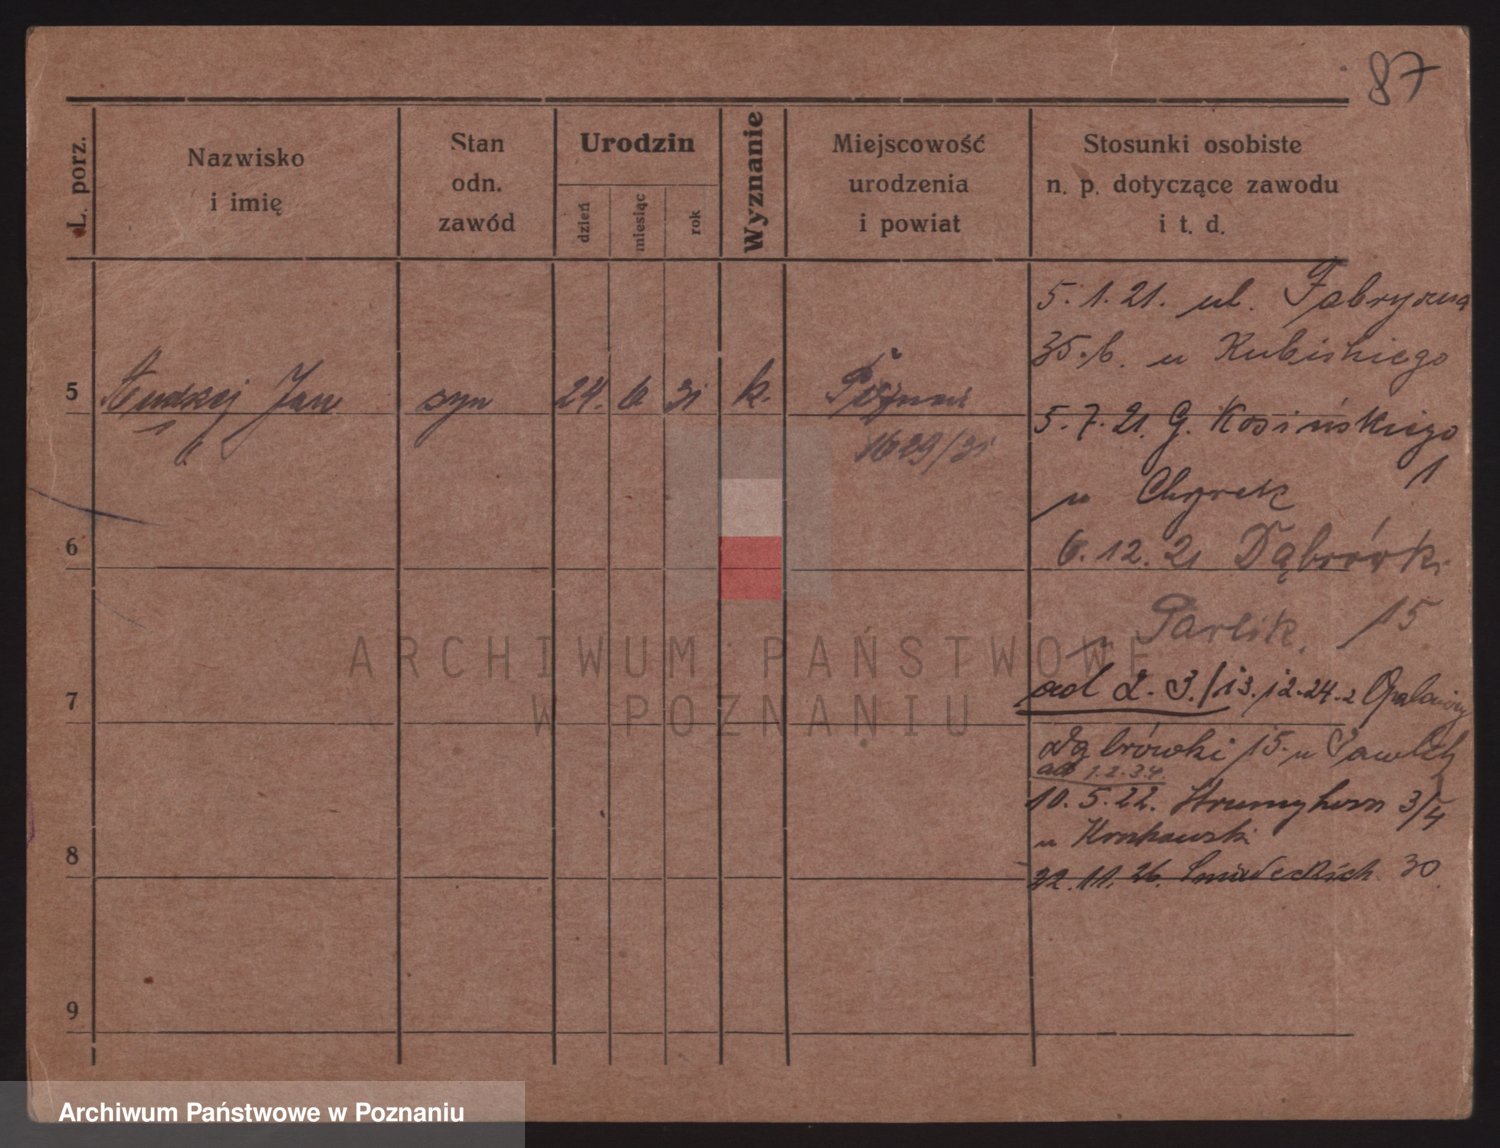 87
L. porz.
Nazwisko
i imię
Stan
odn.
zawód
Urodzin
dzień
miesiąc
rok
Wyznanie
Miejscowość
urodzenia
i powiat
Stosunki osobiste
n. p. dotyczące zawodu
i t. d.
5.1.21. ul. Fabryczna
35.b. u Kubiskiego
5 Andrzej Jan syn 24. 6 31 k. Poznań
1629/31
5.7.21. G. Kosińskiego
1
u
6
6.12.21 Dąbrówki
u Pawlik. 15
7
ad 2.3./13.12.24. z
Dąbrówki 15. u
ad 1.2.3.4.
10.5.22. 3/4
u
8
22.11.26. Śniadeckich 30
9
ARCHIWUM PAŃSTWOWE
W POZNANIU
Archiwum Państwowe w Poznaniu